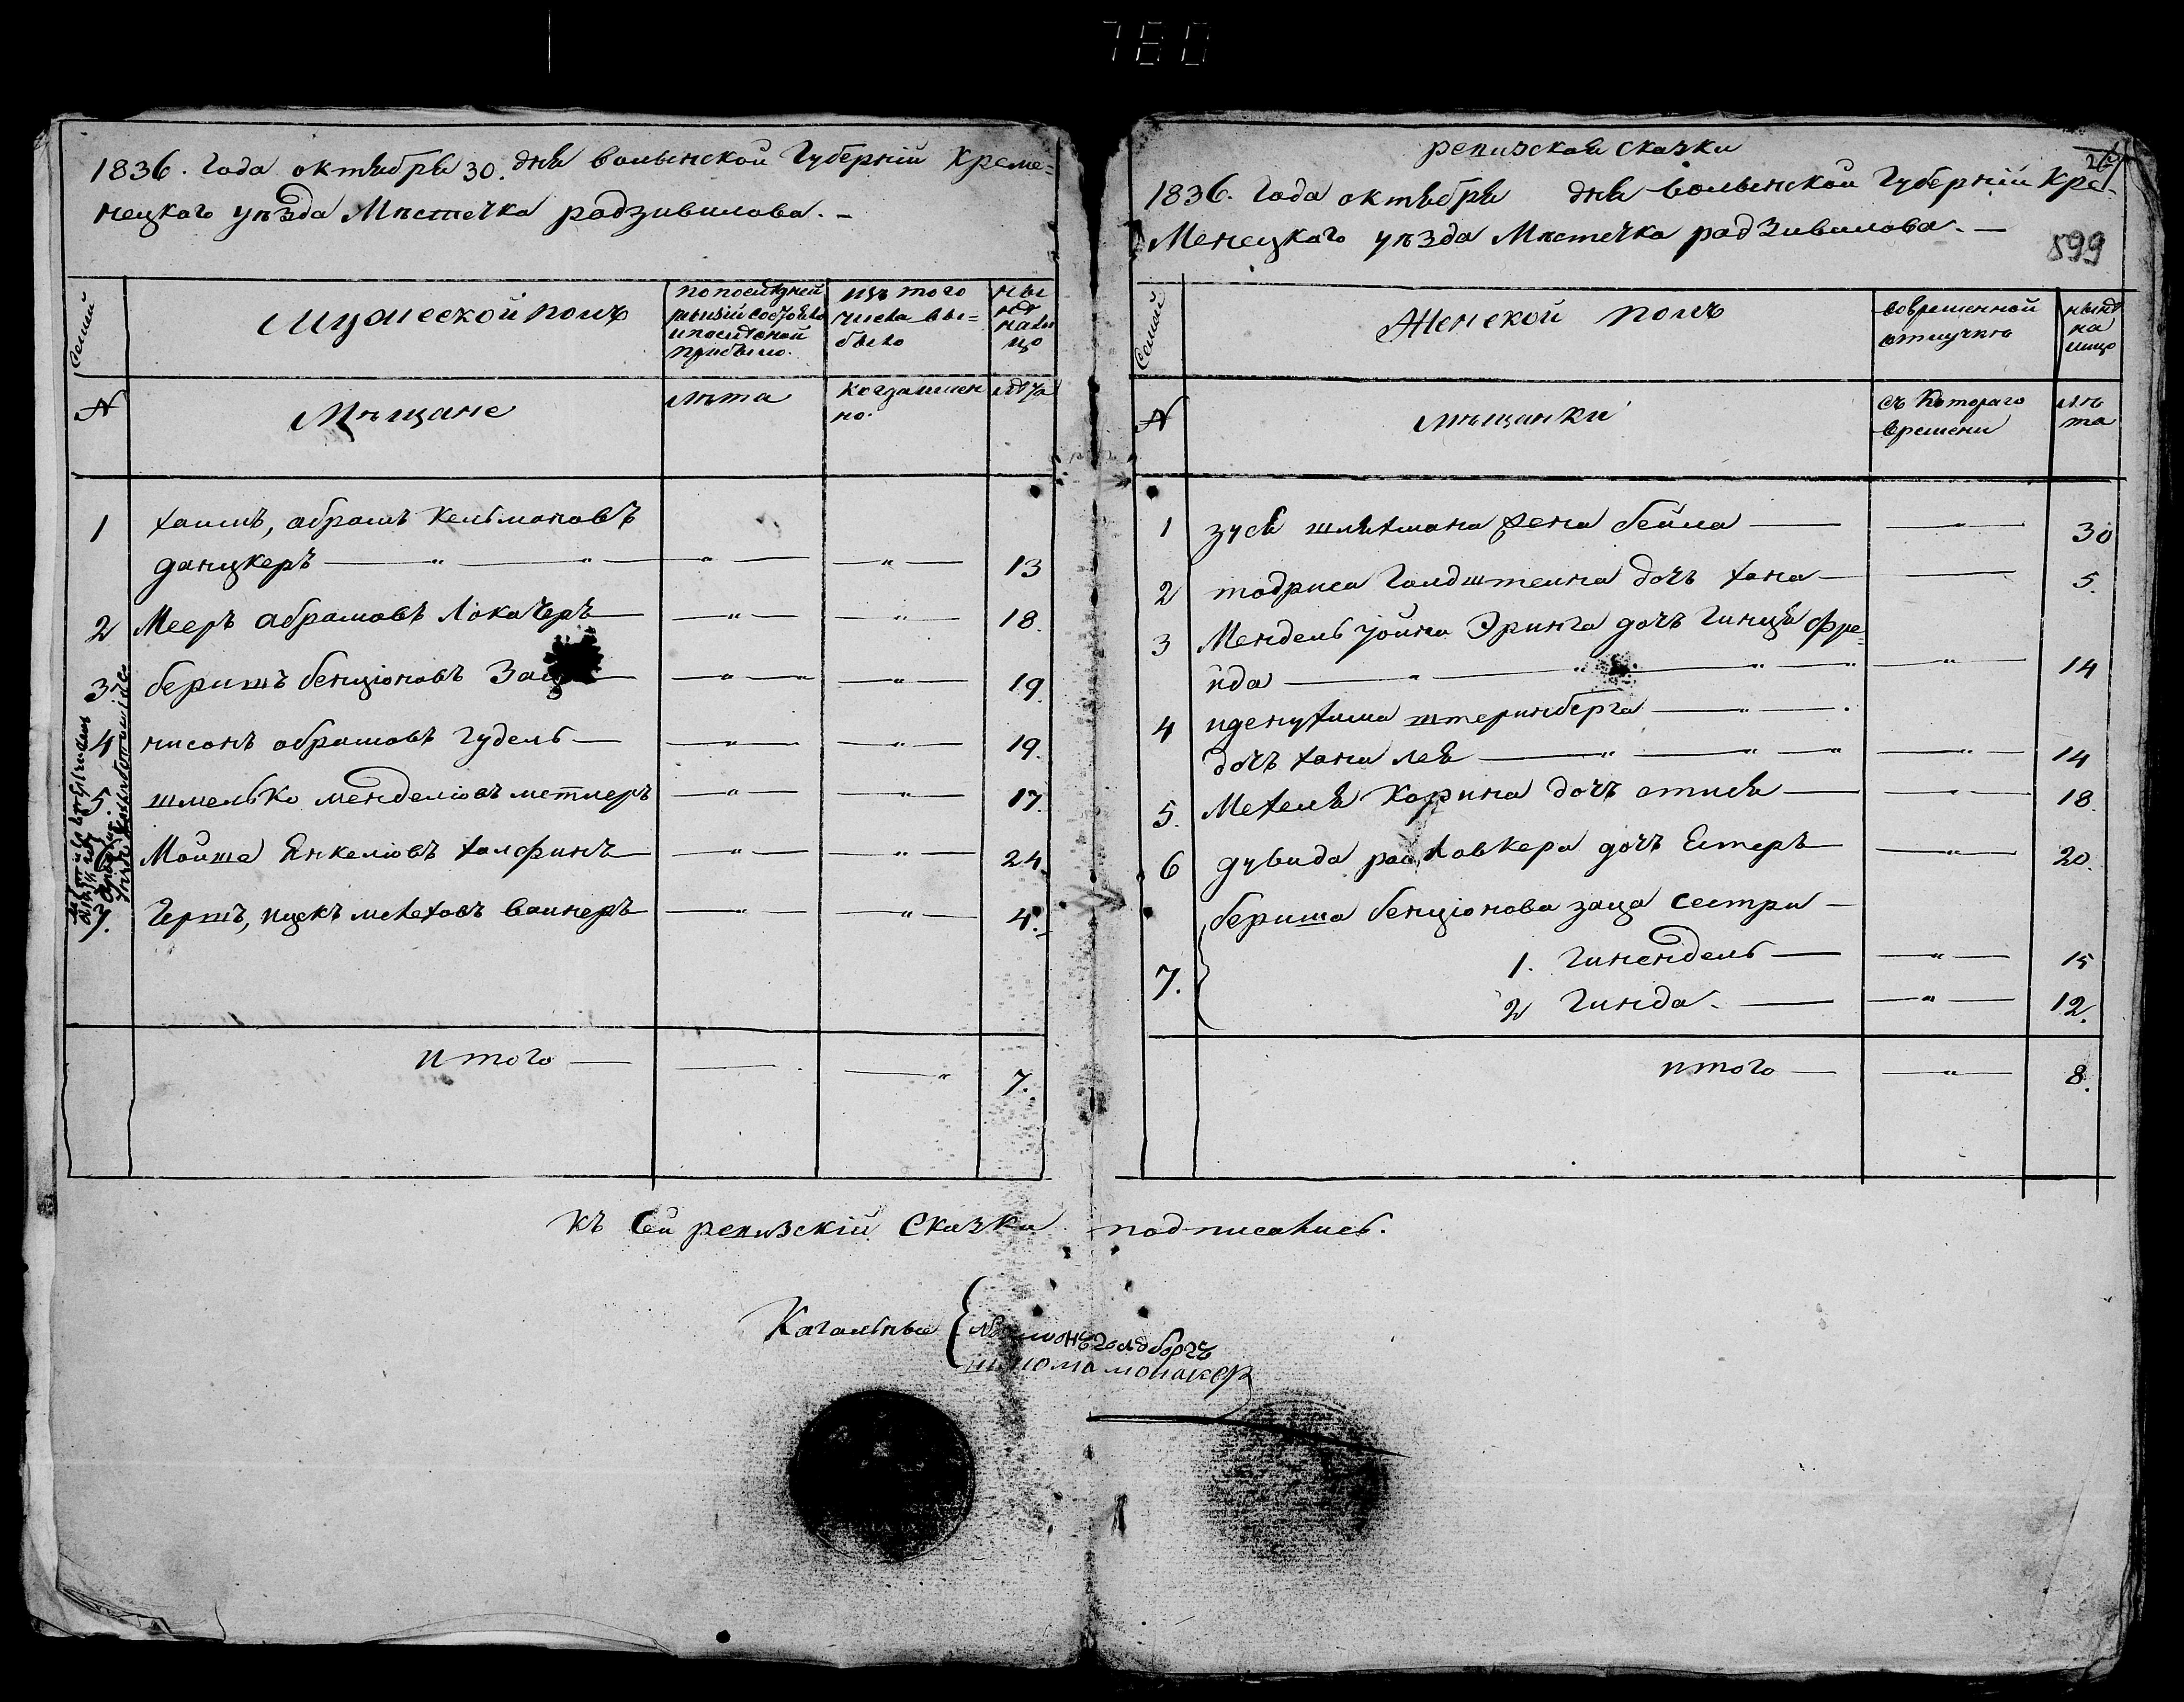 780
1836. года октября 30. дня волынской Губерніи Креме=
нецкого уѣзда Мѣстечка радзивилова. -
Семей
Мужеской полъ
по последней
ревизіи состояло
и последной
прибыло.
изъ того
числа вы=
было
ны
нѣ
на ли
цо
№
Мѣщане
лѣта
когда имен
но.
лѣта
1 хаимъ, абрамъ Кельмановъ
данцкеръ — 13
2 Мееръ абрамовъ Локачеръ — 18.
3 беришъ бенціоновъ Зацъ — 19.
4 нисонъ абрамовъ гудель — 19.
5 шмелько менделіовъ метлеръ — 17.
Мойше Янкеліовъ халфинъ — 24.
7. Гершъ, ицекъ мелеховъ ваинеръ — 4.
итого — 7.
ревизская сказки
269
1836. года октября дня волынской Губерніи Кре-
Менецкаго уѣзда Мѣстечка радзивилова. —
899
Семей
Женской полъ
во временной
отлучкѣ
нынѣ
на
лицо
№
мѣщанки
съ Котораго
времени
лѣ
та
1 зуся шляхмана жена бейла — 30
2 тодриса Голдштеина дочъ хана — 5.
3 Мендель іойны Эринга дочъ гинця фре=
йда — 14
4 штеринберга —
дочъ хани лея — 14
5. Мехеля Корина дочъ этися — 18.
6 дувида дочъ Естеръ — 20.
бериша бенціонова заца сестри —
7. 1. Гинендель — 15
2 Гинда. — 12.
итого — 8.
къ сей ревизскій Сказки подписались.
Кагальные